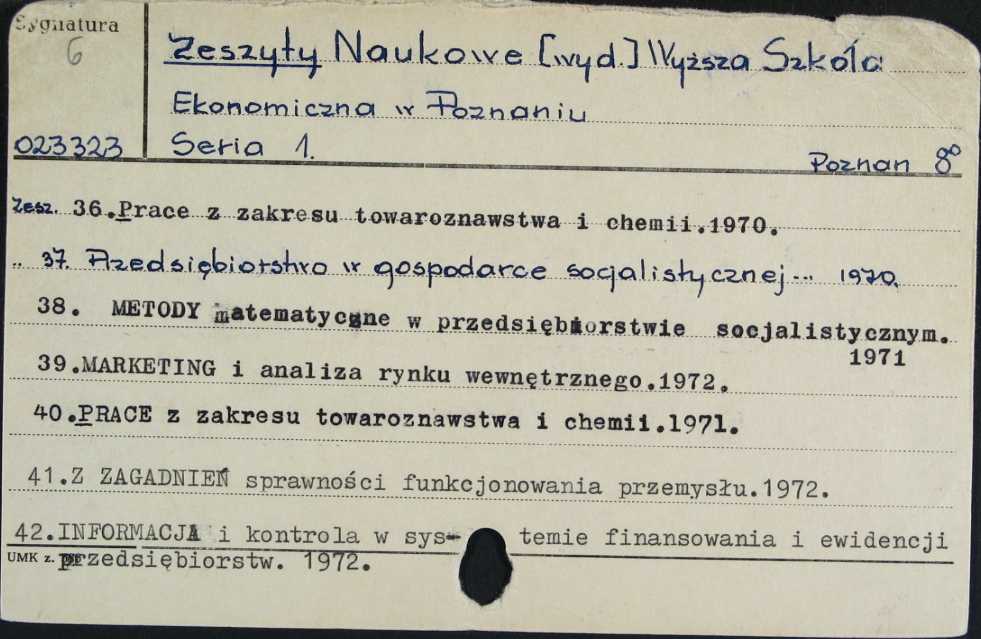 Sygnatura
6
Zeszyty Naukowe [wyd.] Wyższa Szkoła
Ekonomiczna w Poznaniu
023323 Seria 1.
Poznan 8°
Zesz. 36.Prace z zakresu towaroznawstwa i chemii.1970.
„ 37. Przedsiębiorstwo w gospodarce socjalistycznej... 1970.
38. METODY matematyczne w przedsiębiorstwie socjalistycznym.
1971
39.MARKETING i analiza rynku wewnętrznego.1972.
40.PRACE z zakresu towaroznawstwa i chemii.1971.
41.Z ZAGADNIEŃ sprawności funkcjonowania przemysłu.1972.
42.INFORMACJA i kontrola w sys- temie finansowania i ewidencji
UMK z. przedsiębiorstw. 1972.